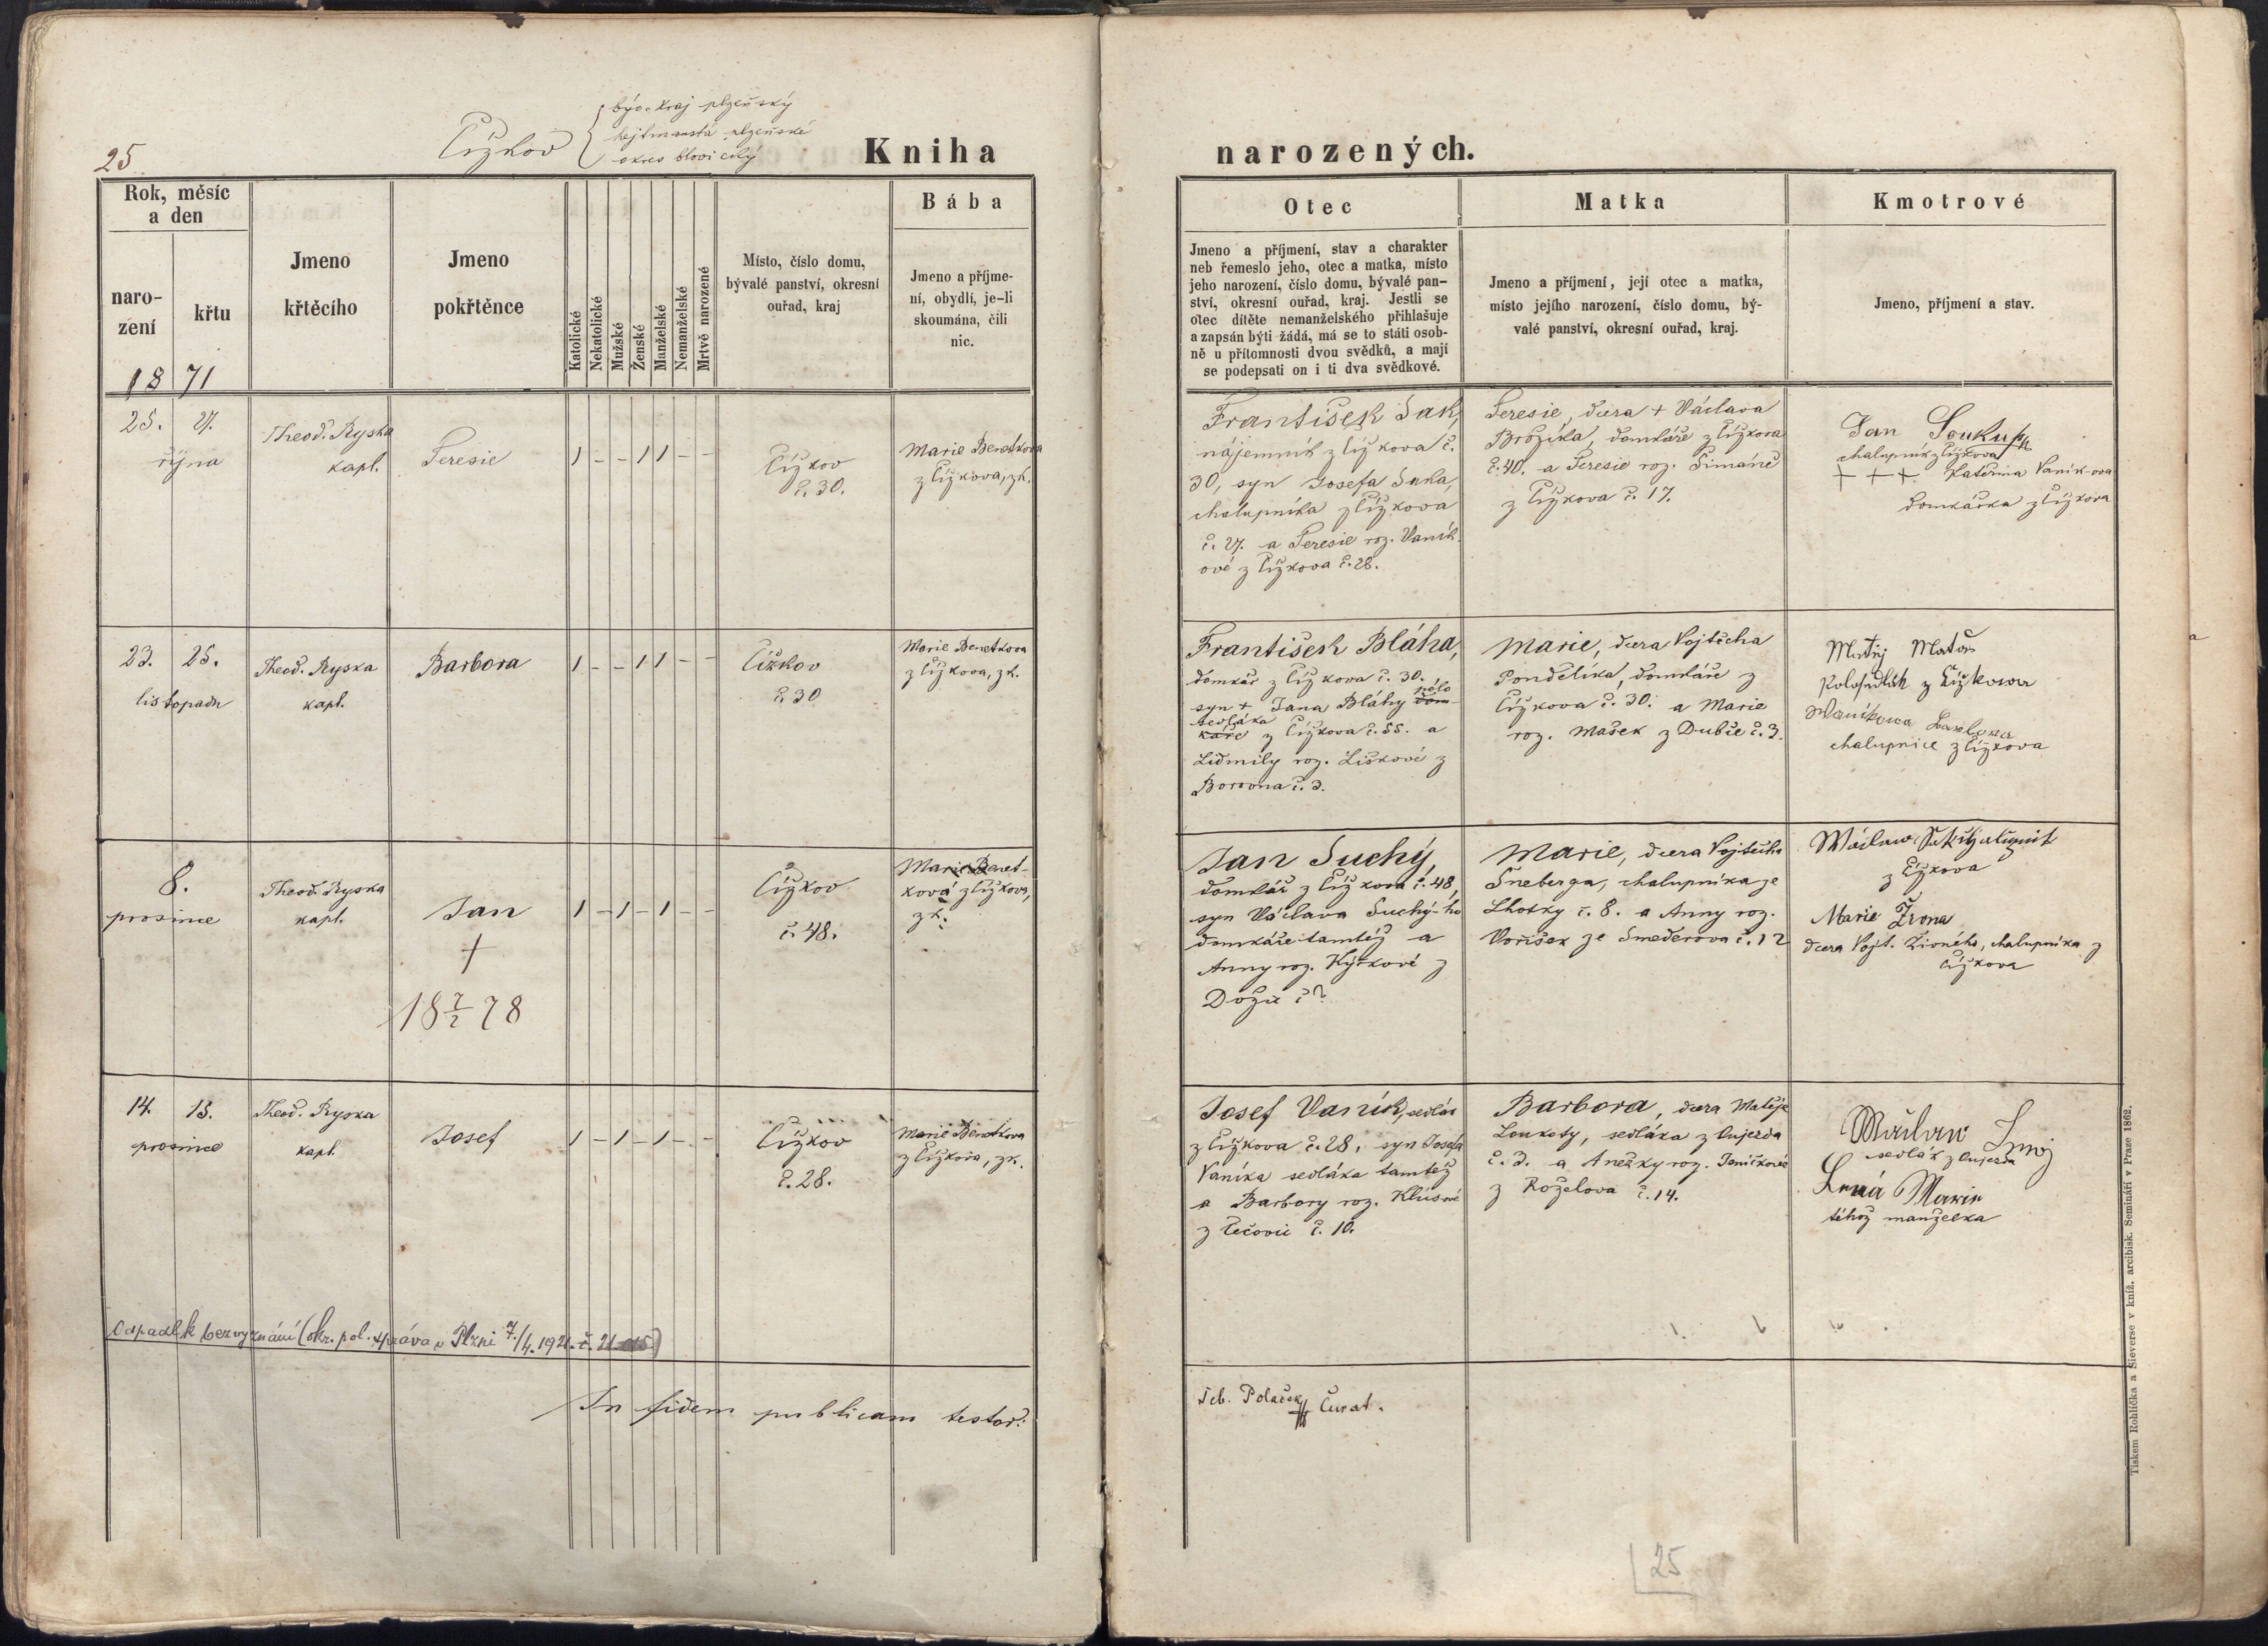 25
Čížkov
býv. kraj plzeňský
hejtmanství plzeňské
okres blovický
Kniha
Rok, měsíc
a den
naro-
zení
křtu
1871
Jmeno
křtěcího
Jmeno
pokřtěnce
Katolické
Nekatolické
Mužské
Ženské
Manželské
Nemanželské
Mrtvě narozené
Místo, číslo domu,
bývalé panství, okresní
ouřad, kraj
Bába
Jmeno a příjme-
ní, obydlí, je-li
skoumána, čili
nic.
25. 27.
října
Theod. Ryska
kapl.
Teresie
1 – – 1 1 – –
Čížkov
č. 30.
Marie Benetkova
z Čížkova, zk.
23. 25.
listopadu
Theod. Ryska
kapl.
Barbora
1 – – 1 1 – –
Čížkov
č. 30
Marie Benetkova
z Čížkova, zk.
8.
prosince
Theod. Ryska
kapl.
Jan
+
18 7/2 78
1 – 1 – 1 – –
Čížkov
č. 48.
Marie Benet-
kova z Čížkova,
zk.
14. 15.
prosince
Theod. Ryska
kapl.
Josef
1 – 1 – 1 – –
Čížkov
č. 28.
Marie Benetkova
z Čížkova, zk.
Odpadl k bezvyznání (okr. pol. správa v Plzni 7./4. 1921. č. 21
In fidem publicam testor:
narozených.
Otec
Jmeno a příjmení, stav a charakter
neb řemeslo jeho, otec a matka, místo
jeho narození, číslo domu, bývalé pan-
ství, okresní ouřad, kraj. Jestli se
otec dítěte nemanželského přihlašuje
a zapsán býti žádá, má se to státi osob-
ně u přítomnosti dvou svědků, a mají
se podepsati on i ti dva svědkové.
Matka
Jmeno a příjmení, její otec a matka,
místo jejího narození, číslo domu, bý-
valé panství, okresní ouřad, kraj.
Kmotrové
Jmeno, příjmení a stav.
František Suk,
nájemník z Čížkova č.
30, syn Josefa Suka,
chalupníka z Čížkova
č. 27. a Teresie roz. Vaník-
ové z Čížkova č. 28.
Teresie, dcera + Václava
Brožíka, domkáře z Čížkova
č. 40. a Teresie roz. Šimáně
z Čížkova č. 17.
Jan Soukup
chalupník z Čížkova
+ + + Kateřina Vaník-ova
domkářka z Čížkova
František Bláha,
domkář z Čížkova č. 30.
syn + Jana Bláhy dom- polo
sedláka
káře z Čížkova č. 55. a
Lidmily roz. Liškové z
Borovna č. 3.
Marie, dcera Vojtěcha
Pondělíka, domkáře z
Čížkova č. 30. a Marie
roz. Mašek z Dubče č. 3.
Matěj Matas
Polosedlák z Čížkowa
Waníkowa
chalupnice z Čížkova
Jan Suchý,
domkář z Čížkova č. 48,
syn Václava Suchý-ho
domkáře tamtéž a
Anny roz. Kýčkové z
Dožic č ?
Marie, dcera Vojtěcha
Šneberga, chalupníka ze
Lhotky č. 8. a Anny roz.
Voříšek ze Smederova č. 12
Wáclaw
z Čížkova
Marie Žrona
dcera Vojt. Živného, chalupníka z
Čížkova
Josef Vaník, sedlák
z Čížkova č. 28, syn Josefa
Vaníka sedláka tamtéž
a Barbory roz. Klusové
z Čečovic č. 10.
Barbora, dcera Matěje
Loukoty, sedláka z Oujezda
č. 3. a Anežky roz. Jeníčkové
z Roželova č. 14.
Wáclaw
sedlák z Oujezda
Marie
téhož manželka
Feb. Polaček Curat.
25
Tiskem Rohlíčka a Sieverse v kníž. arcibisk. Semináři v Praze 1862.